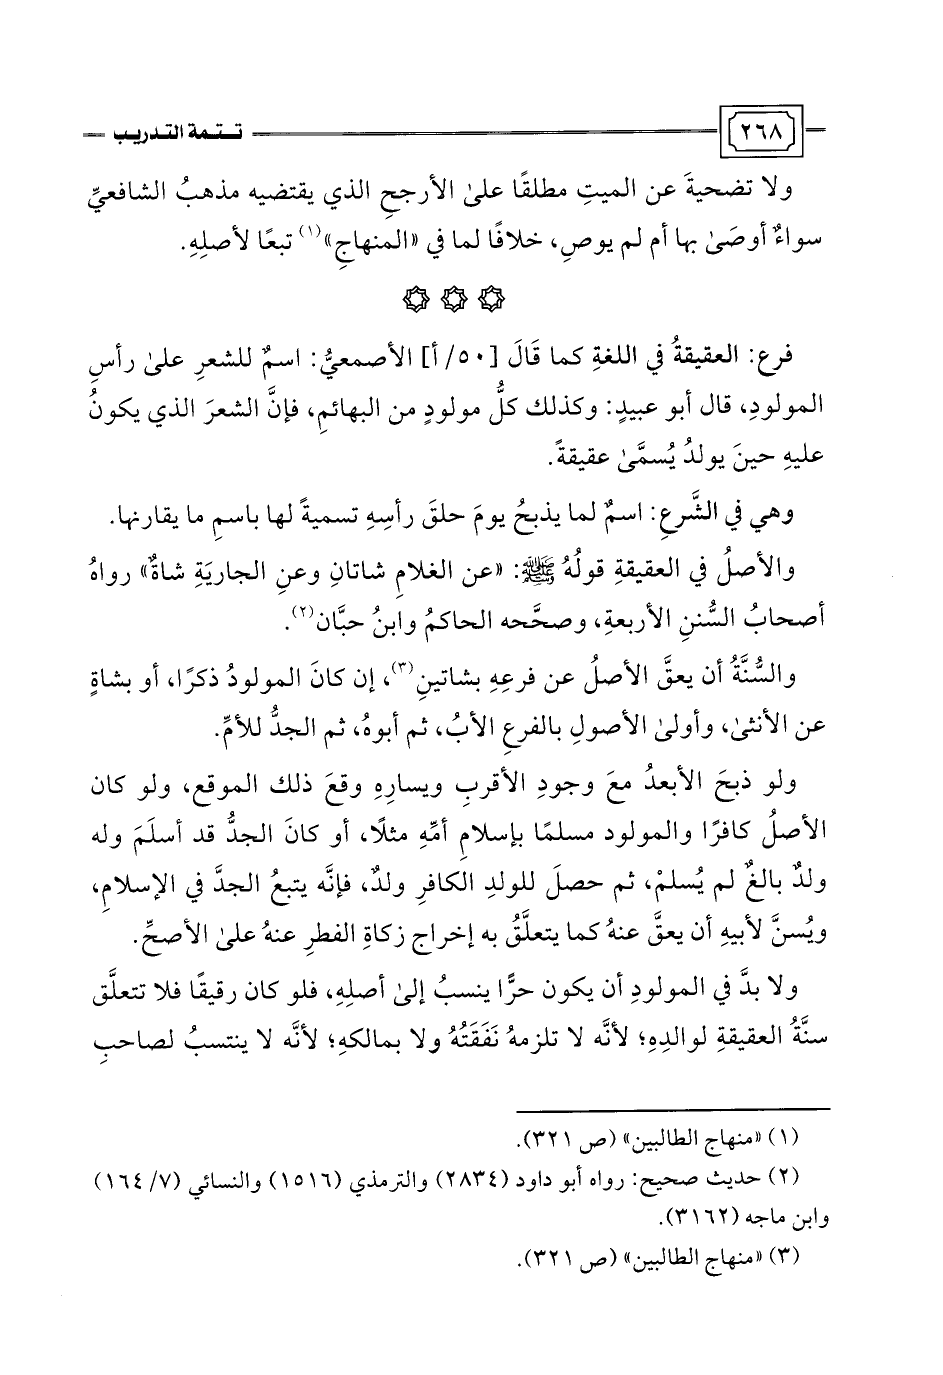 ٢٦٨
تـتـمة التـدريـب
ولا تضحيةَ عن الميتِ مطلقًا علىٰ الأرجحِ الذي يقتضيه مذهبُ الشافعيِّ
سواءٌ أوصَىٰ بها أم لم يوصِ، خلافًا لما في «المنهاجِ»(١) تبعًا لأصلِهِ.
فرع: العقيقةُ في اللغةِ كما قَالَ [٥٠/ أ] الأصمعيُّ: اسمٌ للشعرِ علىٰ رأسِ
المولودِ، قال أبو عبيدٍ: وكذلك كلُّ مولودٍ من البهائمِ، فإنَّ الشعرَ الذي يكونُ
عليهِ حينَ يولدُ يُسمَّىٰ عقيقةً.
وهي في الشَّرعِ: اسمٌ لما يذبحُ يومَ حلقَ رأسِهِ تسميةً لها باسمِ ما يقارنها.
والأصلُ في العقيقةِ قولُهُ ﷺ: «عن الغلامِ شاتان وعنِ الجاريَةِ شاةٌ» رواهُ
أصحابُ السُّننِ الأربعةِ، وصحَّحه الحاكمُ وابنُ حبَّان(٢).
والسُّنَّةُ أن يعقَّ الأصلُ عن فرعِهِ بشاتينِ(٣)، إن كانَ المولودُ ذكرًا، أو بشاةٍ
عن الأنثىٰ، وأولىٰ الأصولِ بالفرعِ الأبُ، ثم أبوهُ، ثم الجدُّ للأمِّ.
ولو ذبحَ الأبعدُ معَ وجودِ الأقربِ ويسارِهِ وقعَ ذلك الموقع، ولو كان
الأصلُ كافرًا والمولود مسلمًا بإسلامِ أمِّهِ مثلًا، أو كانَ الجدُّ قد أسلَمَ وله
ولدٌ بالغٌ لم يُسلمْ، ثم حصلَ للولدِ الكافرِ ولدٌ، فإنَّه يتبعُ الجدَّ في الإسلامِ،
ويُسنَّ لأبيهِ أن يعقَّ عنهُ كما يتعلَّقُ به إخراج زكاةِ الفطرِ عنهُ علىٰ الأصحِّ.
ولا بدَّ في المولودِ أن يكون حرًّا ينسبُ إلىٰ أصلِهِ، فلو كان رقيقًا فلا تتعلَّق
سنَّةُ العقيقةِ لوالدِهِ؛ لأنَّه لا تلزمهُ نَفَقَتُهُ ولا بمالكهِ؛ لأنَّه لا ينتسبُ لصاحبِ
(١) «منهاج الطالبين» (ص ٣٢١).
(٢) حديث صحيح: رواه أبو داود (٢٨٣٤) والترمذي (١٥١٦) والنسائي (٧/ ١٦٤)
وابن ماجه (٣١٦٢).
(٣) «منهاج الطالبين» (ص ٣٢١).